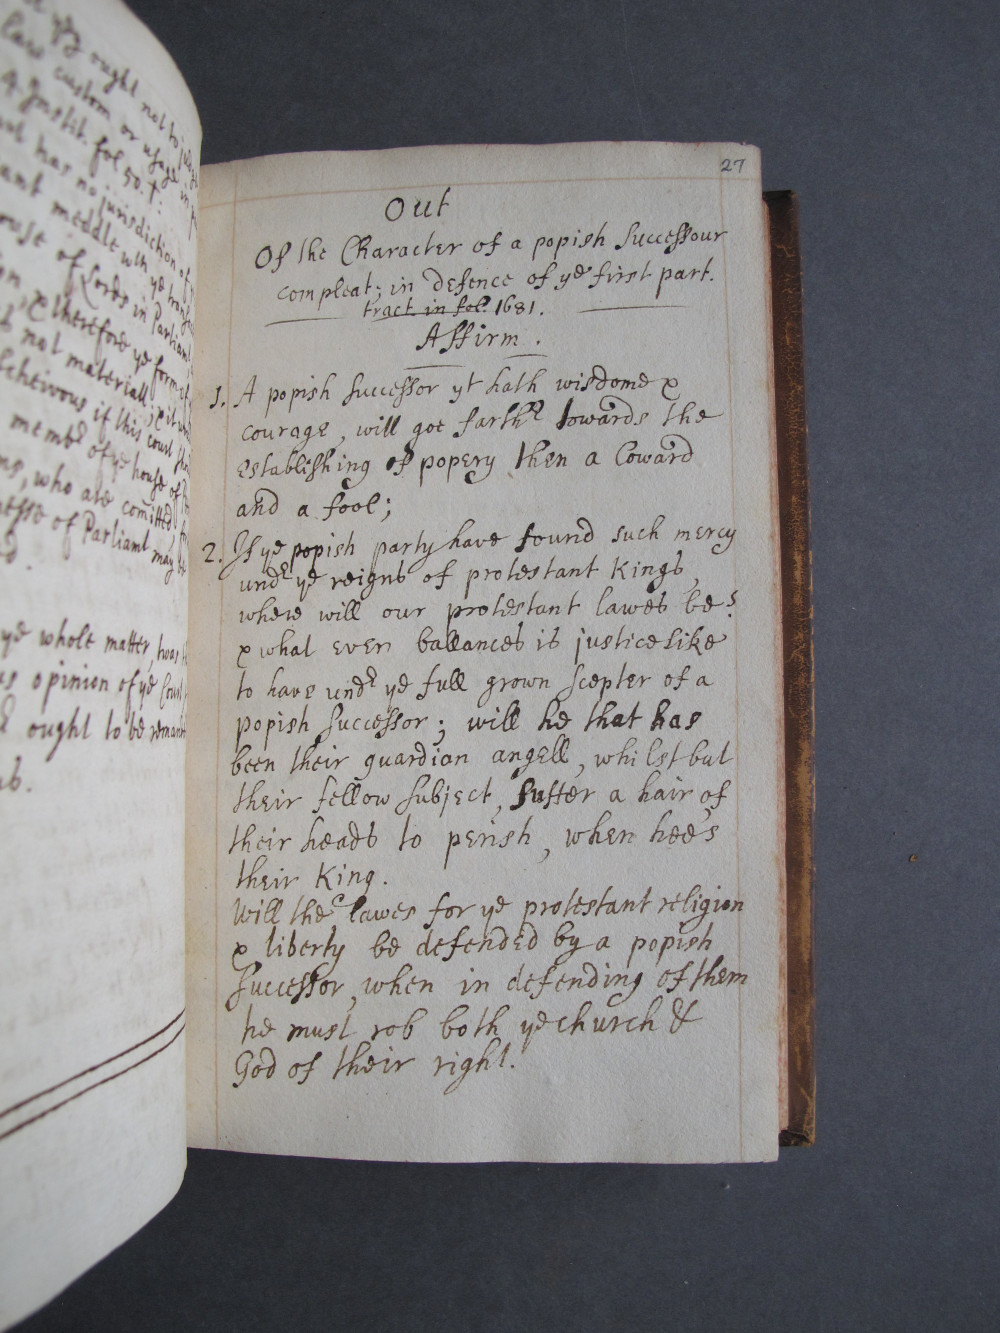 ye ought not to judge
law custom or usage in
4 Instit. fol 50.
has no jurisdiction of
meddle wth ye
house of Lords in Parliamt
& therefore ye form of
not materiall, & it
if this court
membr of ye house of
who are comitted
of Parliamt may be
ye whole matter, twas
opinion of ye Court
ought to be
27
Out
Of the Character of a popish Successour
compleat; in defence of ye first part.
tract in fol. 1681.
Affirm.
1. A popish Successor yt hath wisdome &
courage, will goe farthr towards the
establishing of popery then a Coward
and a fool;
2. If ye popish party have found such mercy
undr ye reigns of protestant Kings,
where will our protestant lawes be?
& what even ballances is justice like
to have undr ye full grown scepter of a
popish Successor; will he that has
been their guardian angell, whilst but
their fellow subject, suffer a hair of
their heads to perish, when hee's
their King.
Will the lawes for ye protestant religion
& liberty be defended by a popish
Successor, when in defending of them
he must rob both ye church &
God of their right.